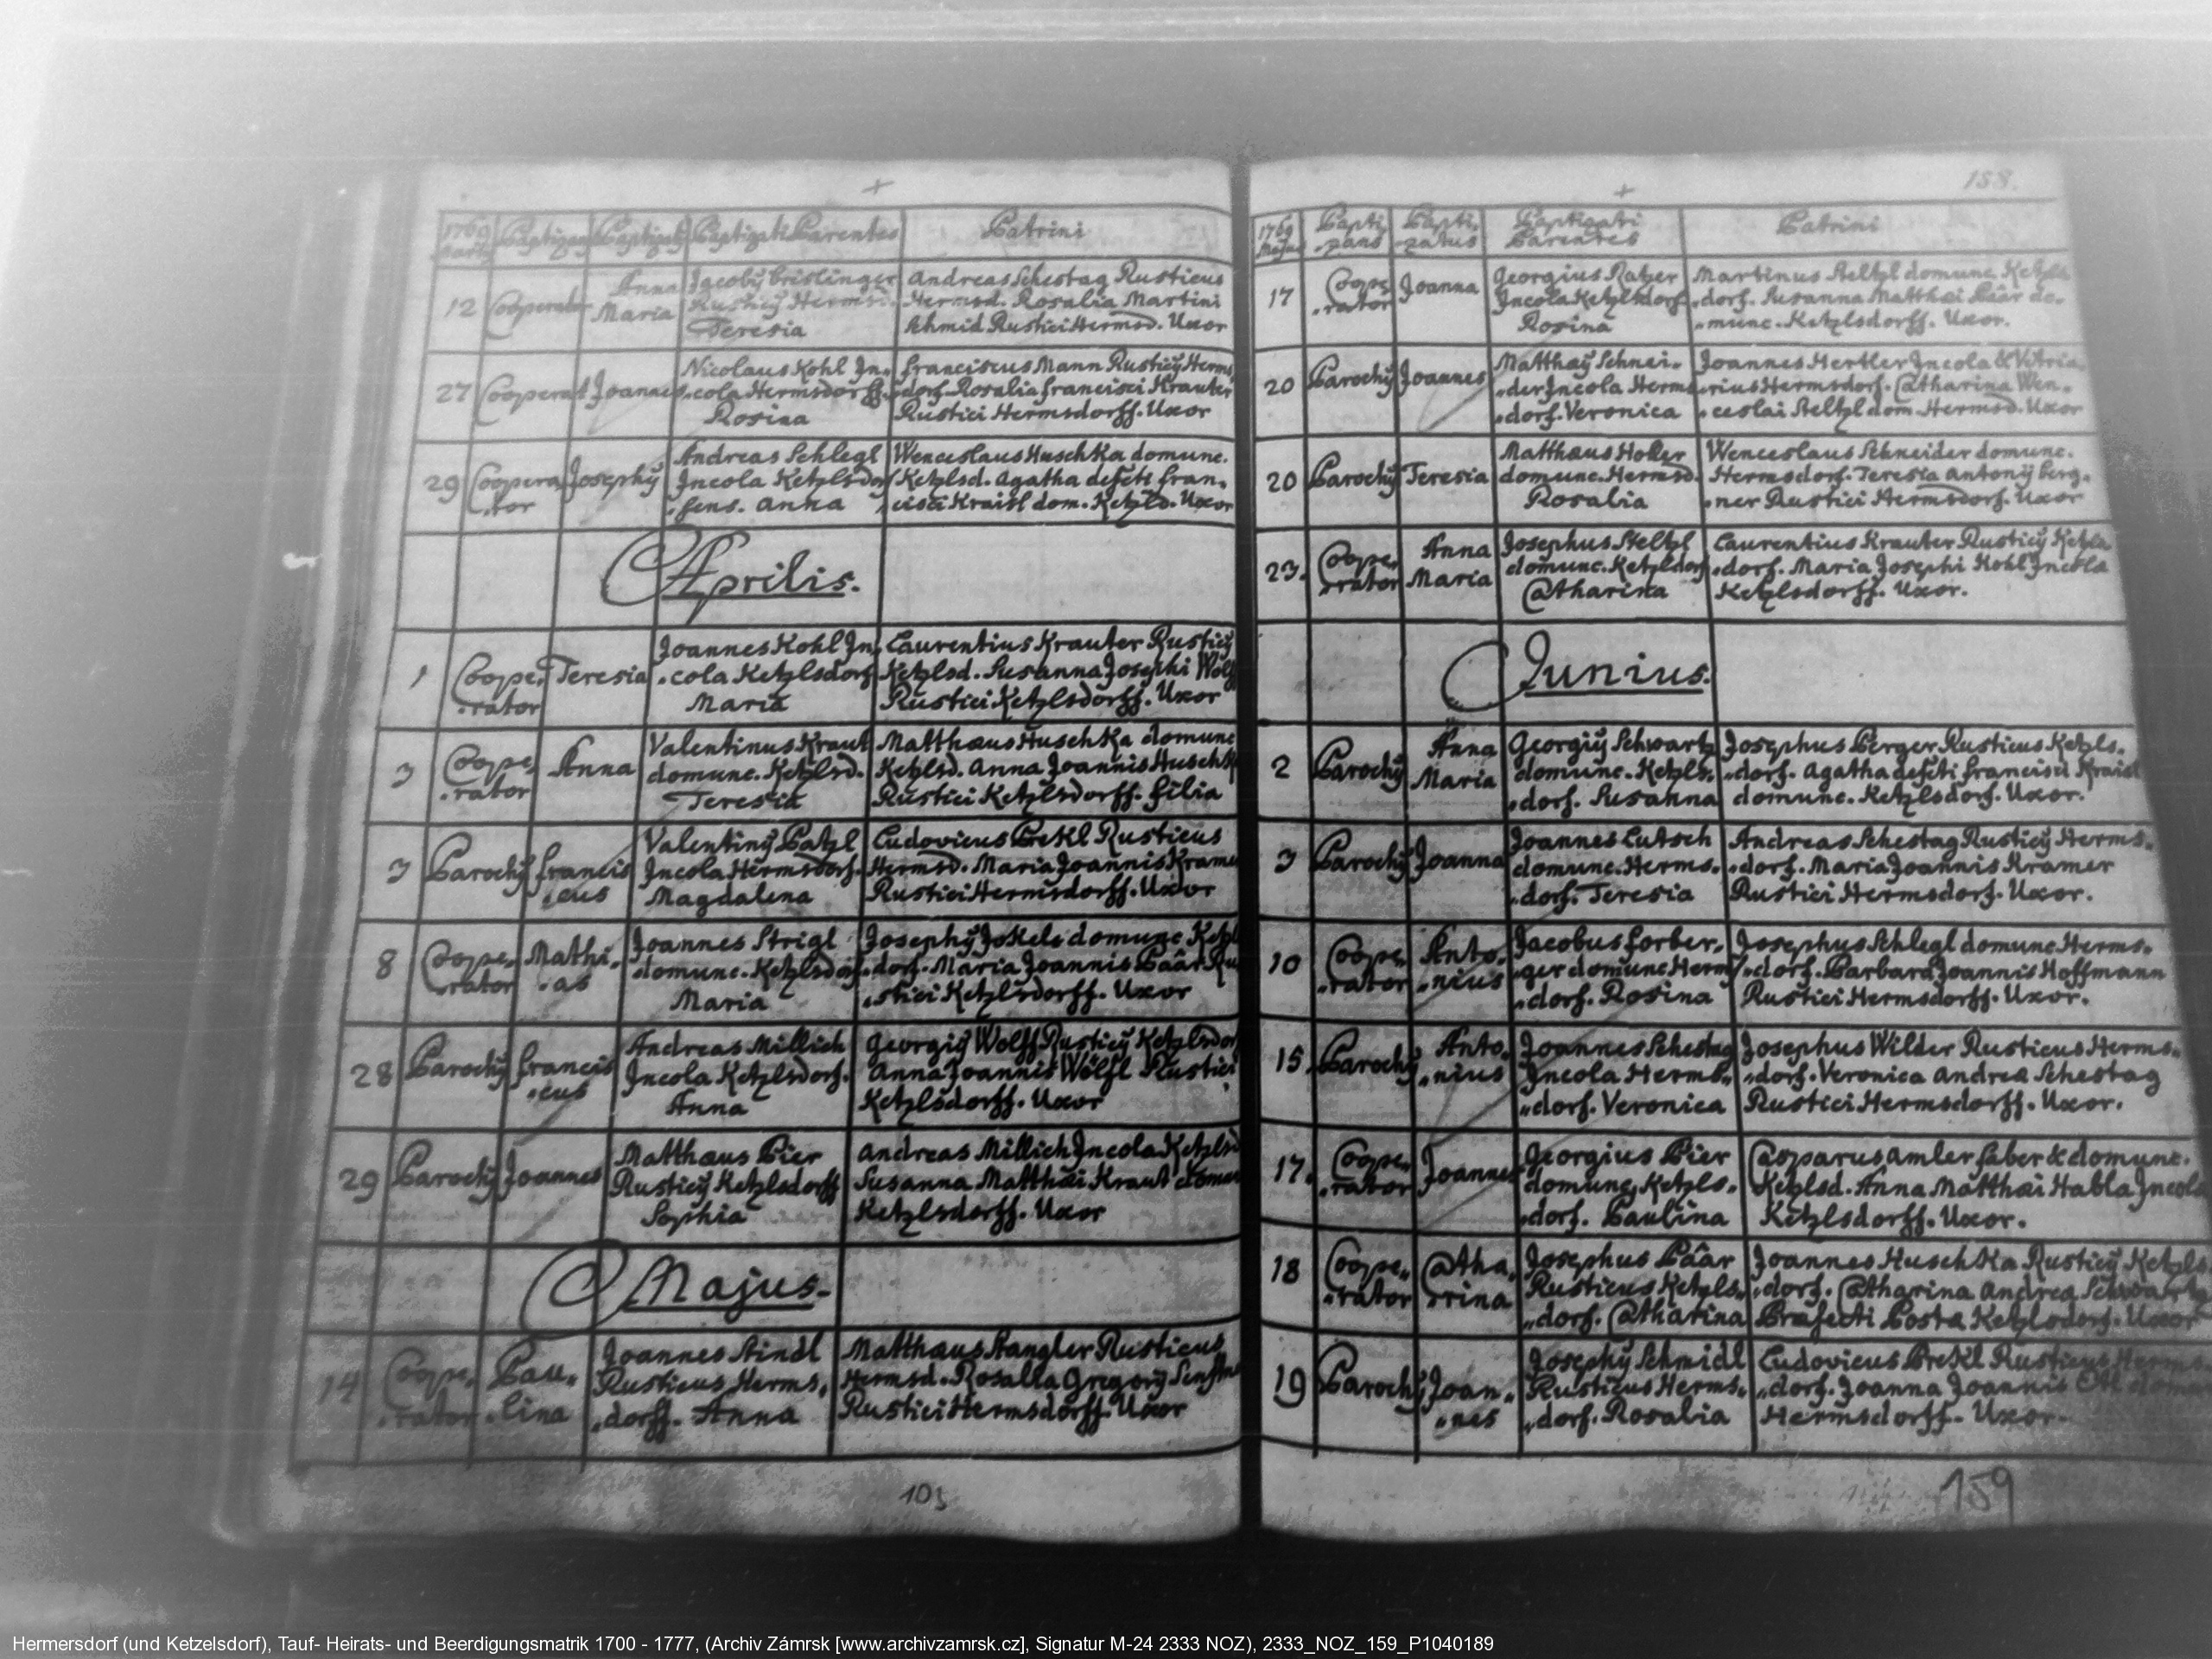 1769
Baptizans Baptizati Baptizati Parentes Patrini
12 Cooperator Anna Maria
Jacoby Cristlinger
Rusticy Hermsd.
Teresia
Andreas Schestag Rusticus
Hermsd. Rosalia Martini
Schmid Rustici Hermsd. Uxor
27 Cooperat Joannes
Nicolaus Kohl Jn,
,cola Hermsdorff.
Rosina
franciscus Mann Rusticy Herms
,dorf. Rosalia francisci Krauter
Rustici Hermsdorff. Uxor
29 Coopera
,tor
Josephy
Andreas Schlegl
Jncola Ketzlsdorf
,fens. Anna
Wenceslaus Huschka domunc.
Ketzlsd. Agatha defcti fran,
,cisci Kraisl dom. Ketzls. Uxor
Aprilis.
1 Coope,
,rator
Teresia
Joannes Kohl Jn,
,cola Ketzlsdorf
Maria
Laurentius Krauter Rusticy
Ketzlsd. Susanna Josephi Wolf
Rustici Ketzlsdorff. Uxor
3 Coope,
,rator
Anna
Valentinus Kraut
domunc. Ketzlsd.
Teresia
Matthaus Huschka domunc
Ketzlsd. Anna Joannis Huschk
Rustici Ketzlsdorff. filia
3 Parochy francis
,cus
Valentiny Patzl
Jncola Hermsdorf.
Magdalena
Ludovicus Prekl Rusticus
Hermsd. Maria Joannis Krame
Rustici Hermsdorff. Uxor
8 Coope,
,rator
Mathi,
,as
Joannes Strigl
domunc. Ketzlsdorf
Maria
Josephy Jokele domunc Ketzl
,dorf. Maria Joannis Päär Ru
,stici Ketzlsdorff. Uxor
28 Parochy francis
,cus
Andreas Millich
Jncola Ketzlsdorf.
Anna
Georgiy Wolff Rusticy Ketzlsdor
Anna Joannis Wölfl Rustici
Ketzlsdorff. Uxor
29 Parochy Joannes
Matthaus Pier
Rusticy Ketzlsdorff
Sophia
Andreas Millich Jncola Ketzlsd
Susanna Matthai Kraut domu
Ketzlsdorff. Uxor
Majus.
14 Coope,
,rator
Pau,
,lina
Joannes Stindl
Rusticus Herms,
,dorff. Anna
Matthaus Stangler Rusticus
Hermsd. Rosalia Gregory
Rustici Hermsdorff. Uxor
103
158.
1769
Majus
Bapti,
,zans
Bapti,
,zatus
Baptizati
Parentes
Patrini
17 Coope
,rator
Joanna
Georgius Ratzer
Jncola Ketzlsdorf
Rosina
Martinus Steltzl domunc Ketzls
,dorf. Susanna Matthai Päär do,
,munc. Ketzlsdorff. Uxor.
20 Parochy Joannes
Matthay Schnei,
,der Jncola Herms
,dorf. Veronica
Joannes Hertler Jncola & Vitria
,rius Hermsdorf. Catharina Wen,
,ceslai Steltzl dom. Hermsd. Uxor
20 Parochy Teresia
Matthaus Holler
domunc. Hermsd.
Rosalia
Wenceslaus Schneider domunc.
Hermsdorf. Teresia Antony Berg,
,ner Rustici Hermsdorf. Uxor
23. Coope,
,rator
Anna
Maria
Josephus Steltzl
domunc. Ketzldorf
Catharina
Laurentius Krauter Rusticy Ketzls
,dorf. Maria Josephi Kohl Jncola
Ketzlsdorff. Uxor.
Junius.
2 Parochy Anna
Maria
Georgiy Schwartz
domunc. Ketzls,
,dorf. Susanna
Josephus Perger Rusticus Ketzls,
,dorf. Agatha defcti francisci Kraisl
domunc. Ketzlsdorf. Uxor.
3 Parochy Joanna
Joannes Lutsch
domunc. Herms,
,dorf. Teresia
Andreas Schestag Rusticy Herms,
,dorf. Maria Joannis Kramer
Rustici Hermsdorf. Uxor.
10 Coope,
,rator
Anto,
,nius
Jacobus forber,
,ger domunc Herms
,dorf. Rosina
Josephus Schlegl domunc Herms,
,dorf. Barbara Joannis Hoffmann
Rustici Hermsdorff. Uxor.
15. Parochy Anto,
,nius
Joannes Schestag
Jncola Herms,
,dorf. Veronica
Josephus Wilder Rusticus Herms,
,dorf. Veronica Andrea Schestag
Rustici Hermsdorff. Uxor.
17. Coope,
,rator
Joannes
Georgius Pier
domunc, Ketzls,
,dorf. Paulina
Casparus Amler faber & domunc.
Ketzlsd. Anna Matthai Habla Jncola
Ketzlsdorff. Uxor.
18 Coope,
,rator
Catha,
,rina
Josephus Päär
Rusticus Ketzls,
,dorf. Catharina
Joannes Huschka Rusticy Ketzls
,dorf. Catharina Andrea Schwartz
Præfecti Posta Ketzlsdorf. Uxor
19 Parochy Joan,
,nes
Josephy Schmidl
Rusticus Herms,
,dorf. Rosalia
Ludovicus Prekl Rusticus Herms
,dorf. Joanna Joannis
Hermsdorff. Uxor.
159
Hermersdorf (und Ketzelsdorf), Tauf- Heirats- und Beerdigungsmatrik 1700 - 1777, (Archiv Zámrsk [www.archivzamrsk.cz], Signatur M-24 2333 NOZ), 2333_NOZ_159_P1040189